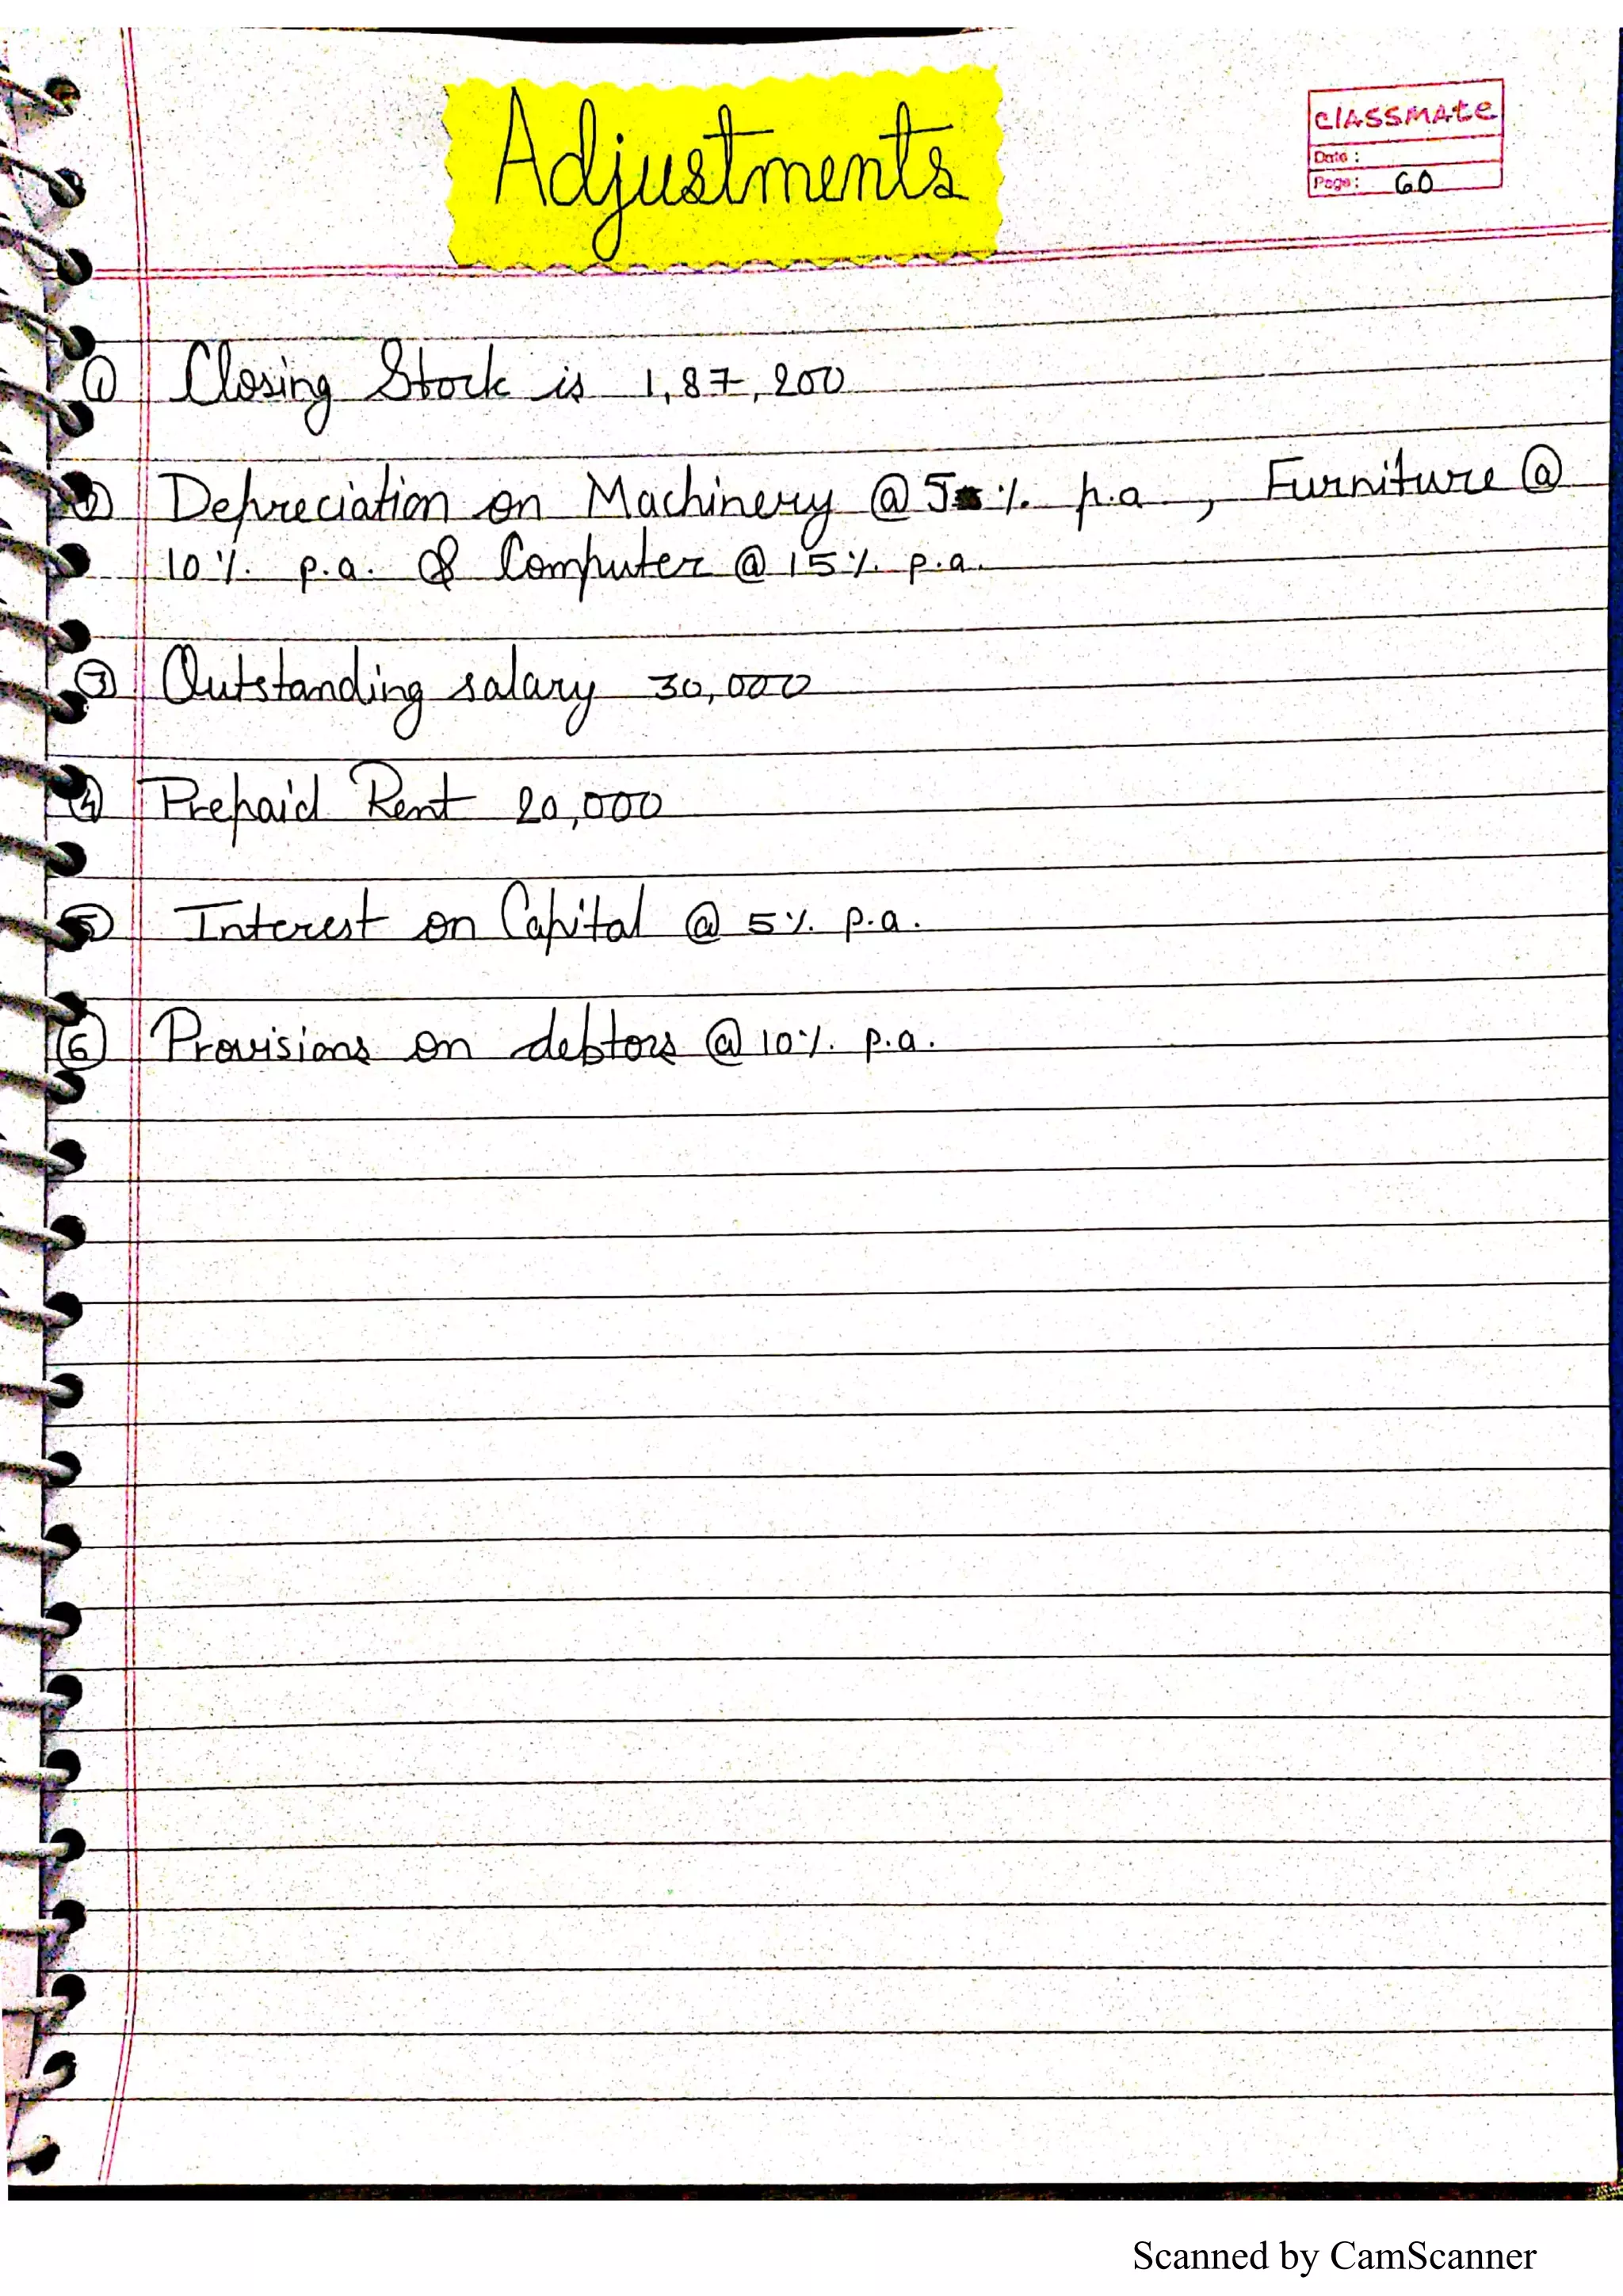 Adjustments
classmate
Date :
Page : 60
① Closing Stock is 1,87,200
② Depreciation on Machinery @ 5% p.a , Furniture @
10% p.a. & Computer @ 15% p.a.
③ Outstanding salary 30,000
④ Prepaid Rent 20,000
⑤ Interest on Capital @ 5% p.a.
⑥ Provisions on debtors @ 10% p.a.
Scanned by CamScanner